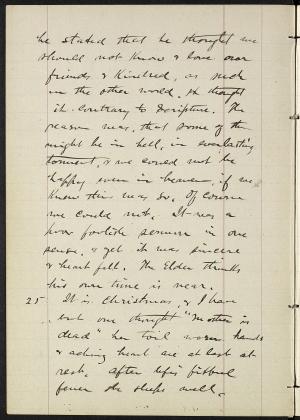 he stated that he thought we
should not know & love our
friends & kindred, as such
in the other world. He thought
it contrary to Scripture. The
reason was, that some of them
might be in hell, in everlasting
torment, & we could not be
happy even in heaven, if we
knew this was so. Of course
we could not. It was a
poor foolish sermon in one
sense, & yet it was sincere
& heart felt. The Elder thinks
his own time is near.
25 It is Christmas, & I have
but one thought "Mother is
dead" her toil worn hands
& aching heart are at last at
rest. After life's fitful
fever she sleeps well.